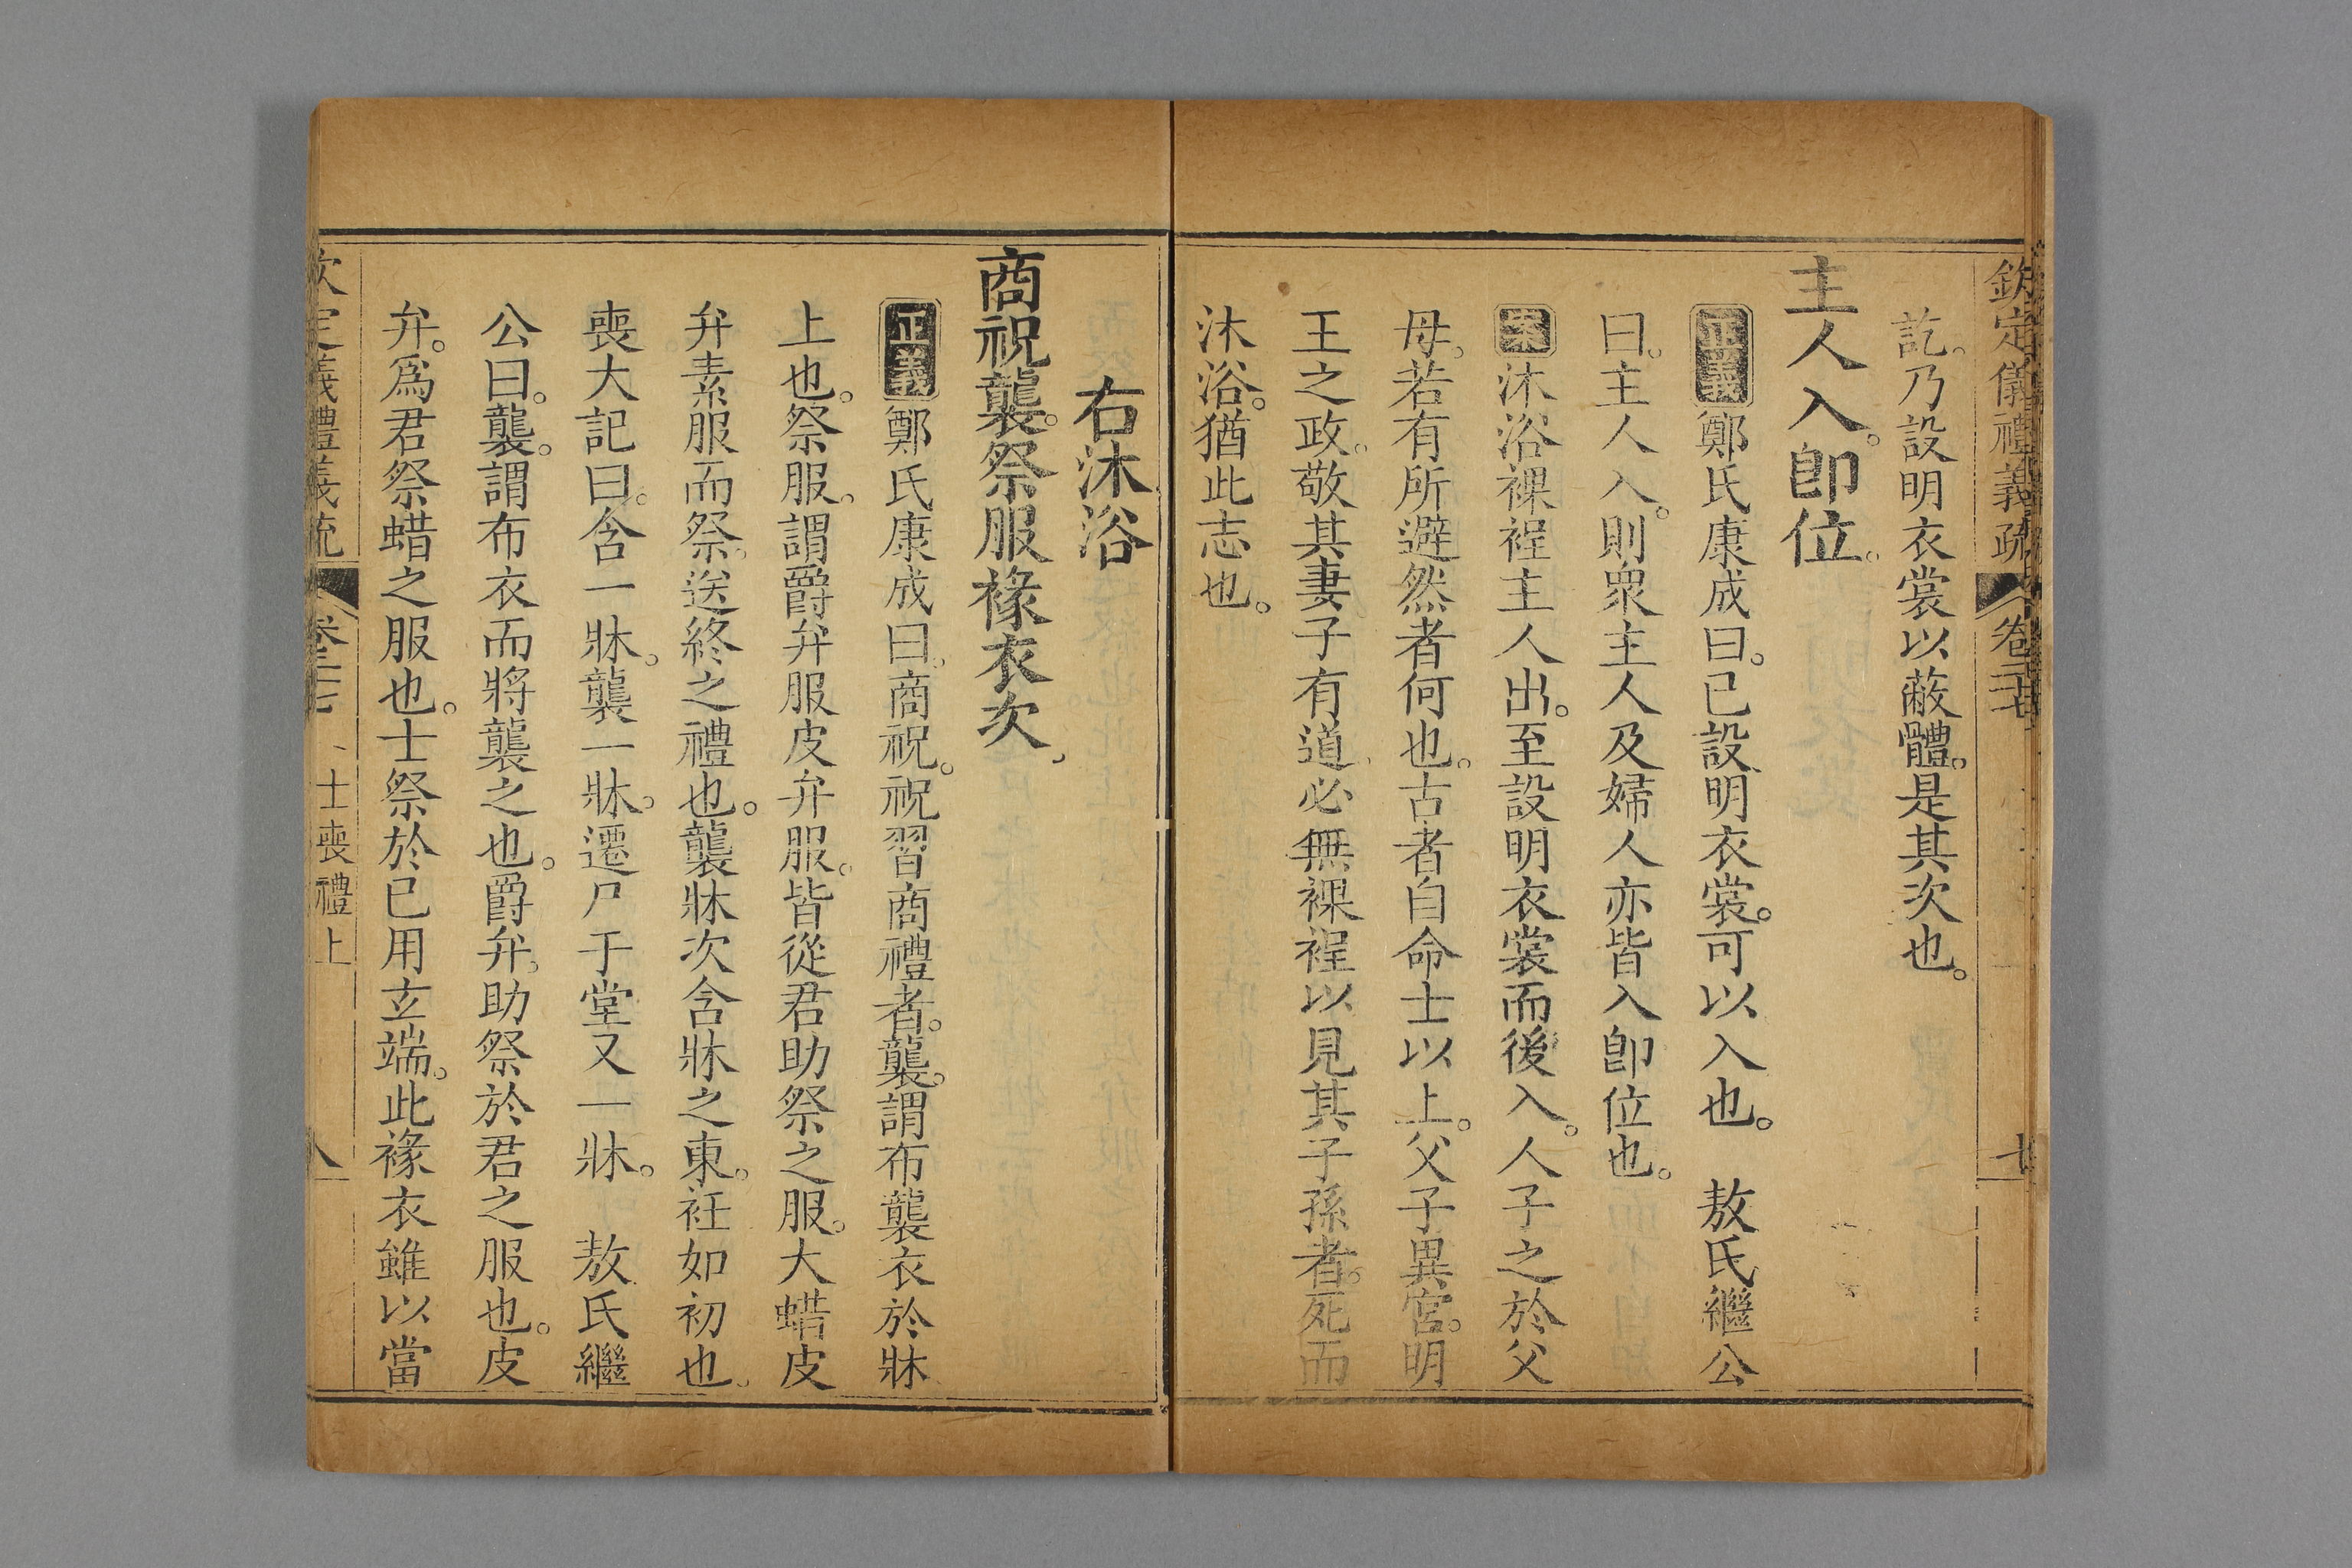 欽定儀禮義疏 卷二十七 七
訖。乃設明衣裳以蔽體。是其次也。
主人入。卽位。
正義 鄭氏康成曰。已設明衣裳。可以入也。 敖氏繼公
曰。主人入。則衆主人及婦人亦皆入卽位也。
案 沐浴裸裎主人出。至設明衣裳而後入。人子之於父
母。若有所避然者何也。古者自命士以上。父子異宮。明
王之政。敬其妻子有道、必無裸裎以見其子孫者。死而
沐浴。猶此志也。
右沐浴
商祝襲。祭服褖衣次、
正義 鄭氏康成曰。商祝。祝習商禮者。襲。謂布襲衣於牀
上也。祭服。謂爵弁服皮弁服。皆從君助祭之服。大蜡皮
弁素服而祭。送終之禮也。襲牀次含牀之東。衽如初也。
喪大記曰。含一牀。襲一牀。遷尸于堂又一牀。 敖氏繼
公曰。襲。謂布衣而將襲之也。爵弁。助祭於君之服也。皮
弁。爲君祭蜡之服也。士祭於已用玄端。此褖衣雖以當
欽定儀禮義疏 卷二十七、士喪禮上 八